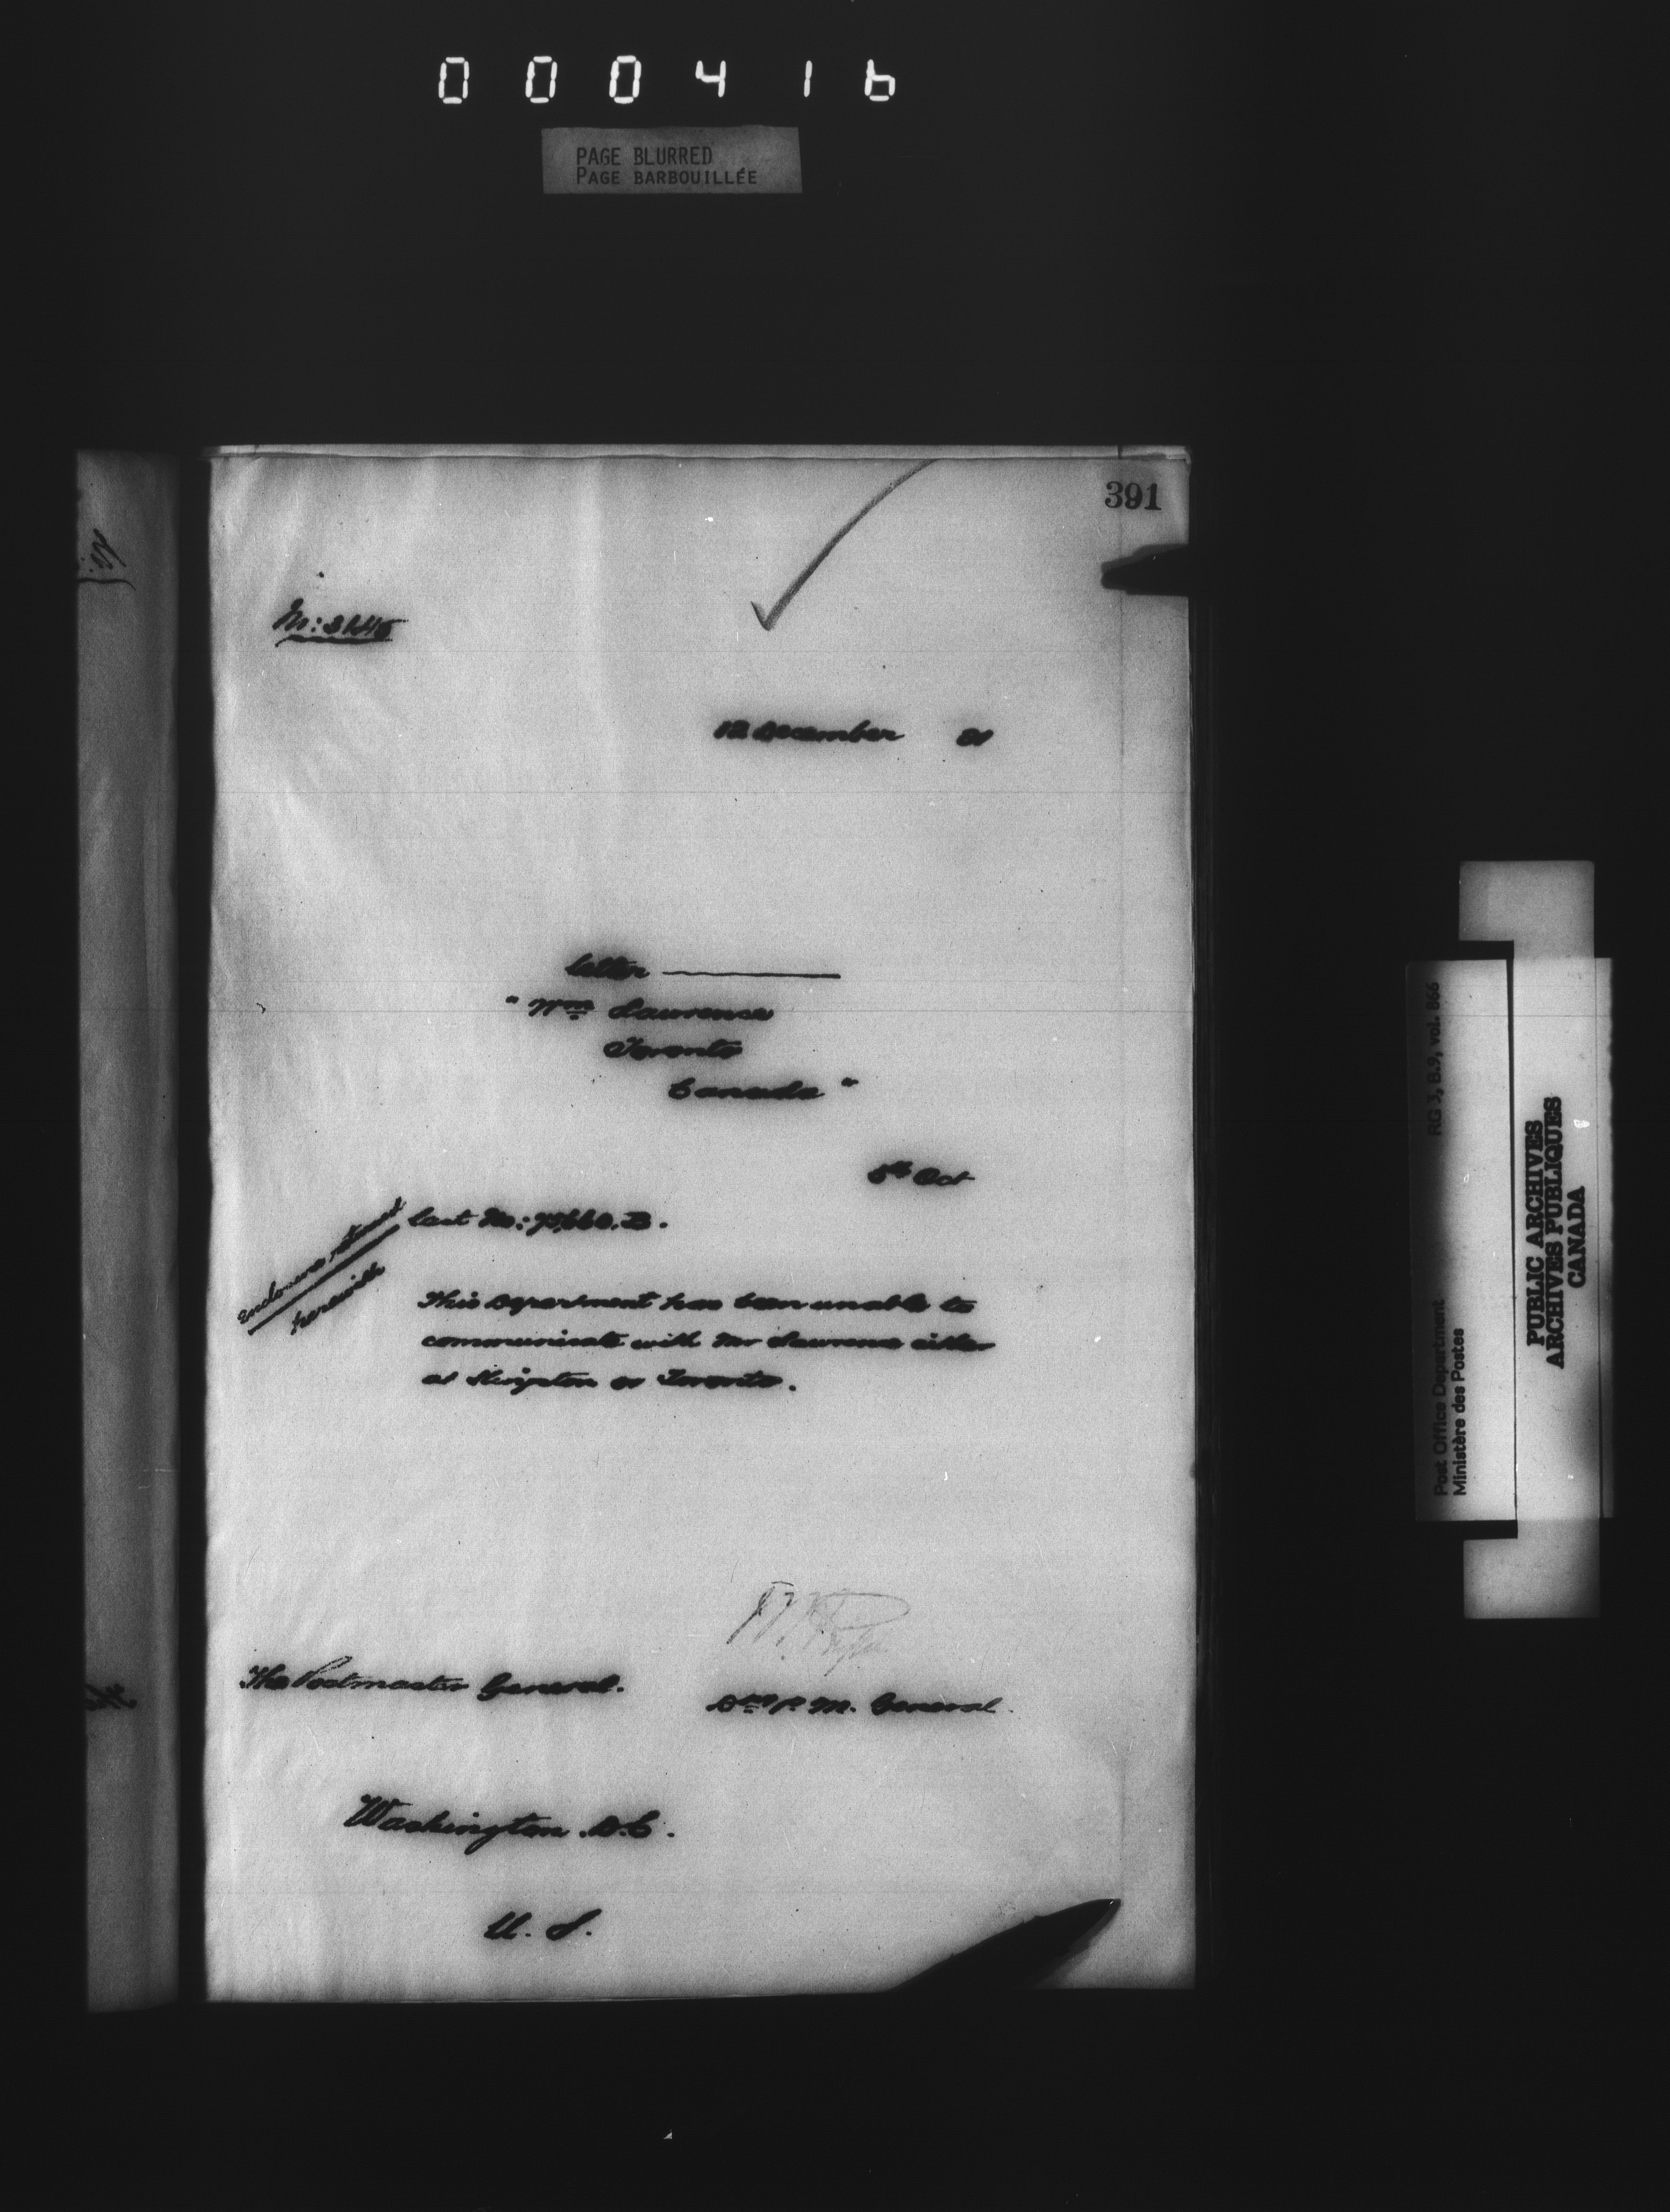 000416
PAGE BLURRED
PAGE BARBOUILLÉE
391
12 December 81
letter
" Wm Lawrence
Toronto
Canada "
5th Oct
last No:
Enclosure returned
herewith
This Department has been unable to
communicate with Mr Lawrence either
at Kingston or Toronto.
The Postmaster General.
Dy P. M. General.
Washington. D.C.
U. S.
Post Office Department RG 3, B.9, vol. 866
Ministère des Postes
PUBLIC ARCHIVES
ARCHIVES PUBLIQUES
CANADA